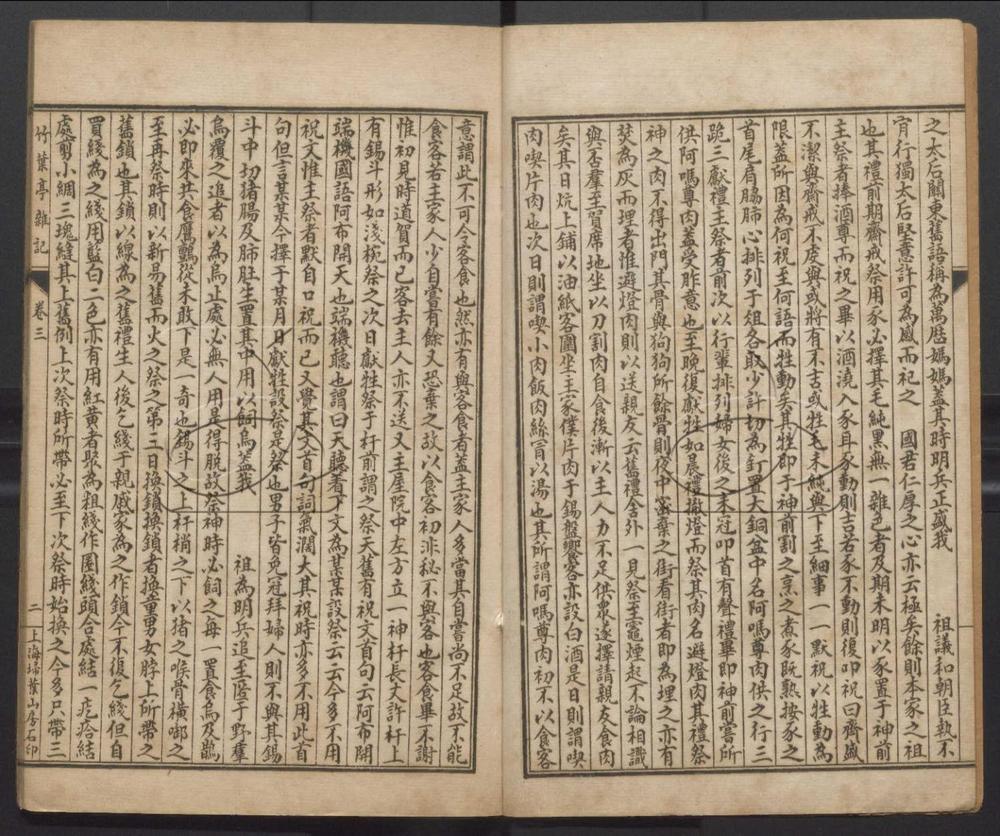 之太后關東舊語稱為萬厯媽媽蓋其時明兵正盛我　　祖議和朝臣執不
肎行獨太后堅意許可為感而祀之　國君仁厚之心亦云極矣餘則本家之祖
也其禮前期齋戒祭用豕必擇其毛純黑無一雜色者及期未明以豕置于神前
主祭者捧酒尊而祝之畢以酒澆入豕耳豕動則吉若豕不動則復叩祝曰齊盛
不潔與齋戒不虔與或將有不吉或牲毛未純與下至細事一一默祝以牲動為
限蓋所因為何祝至何語而牲動矣其牲即于神前割之烹之煮豕既熟按豕之
首尾肩脇肺心排列于俎各取少許切為飣置大銅盆中名阿嗎尊肉供之行三
跪三獻禮主祭者前次以行輩排列婦女後之末冠叩首有聲禮畢即神前嘗所
供阿嗎尊肉蓋受胙意也至晚復獻牲如晨禮撤燈而祭其肉名避燈肉其禮祭
神之肉不得出門其骨與狗狗所餘骨則夜中密棄之街看街者即為埋之亦有
焚為灰而埋者惟避燈肉則以送親友云舊禮舍外一見祭至竈煙起不論相識
與否羣至賀席地坐以刀割肉自食後漸以主人力不足供眾遂擇請親友食肉
矣其日炕上鋪以油紙客圍坐主家僕片肉于錫盤饗客亦設白酒是日則謂喫
肉喫片肉也次日則謂喫小肉飯肉絲冐以湯也其所謂阿嗎尊肉初不以食客
意謂此不可令客食也然亦有與客食者蓋主家人多當其自嘗尚不足故不能
食客若主家人少自嘗有餘又恐棄之故以食客初非秘不與客也客食畢不謝
惟初見時道賀而已客去主人亦不送又主屋院中左方立一神杆長丈許杆上
有錫斗形如淺椀祭之次日獻牲祭于杆前謂之祭天舊有祝文首句云阿布開
端機國語阿布開天也端機聽也謂曰天聽着下文為某某設祭云云今多不用
祝文惟主祭者默自口祝而已又覺其文首句詞氣濶大其祝時亦多不用此首
句但言某某今擇于某月日獻牲設祭是祭也男子皆免冠拜婦人則不與其錫
斗中切猪腸及肺肚生置其中用以飼烏蓋我　　祖為明兵追至匿于野羣
烏覆之追者以為烏止處必無人用是得脫故祭神時必飼之每一置食烏及鵲
必即來共食鷹鸇從未敢下是一奇也錫斗之上杆梢之下以猪之喉骨橫啣之
至再祭時則以新易舊而火之祭之第三日換鎖換鎖者換童男女脖上所帶之
舊鎖也其鎖以線為之舊禮生人後乞綫于親戚家為之作鎖今不復乞綫但自
買綫為之綫用藍白二色亦有用紅黃者聚為粗綫作圈綫頭合處結一疙㾑結
處剪小綢三塊縫其上舊例上次祭時所帶必至下次祭時始換之今多只帶三
竹葉亭雜記　卷三　二　上海埽葉山房石印